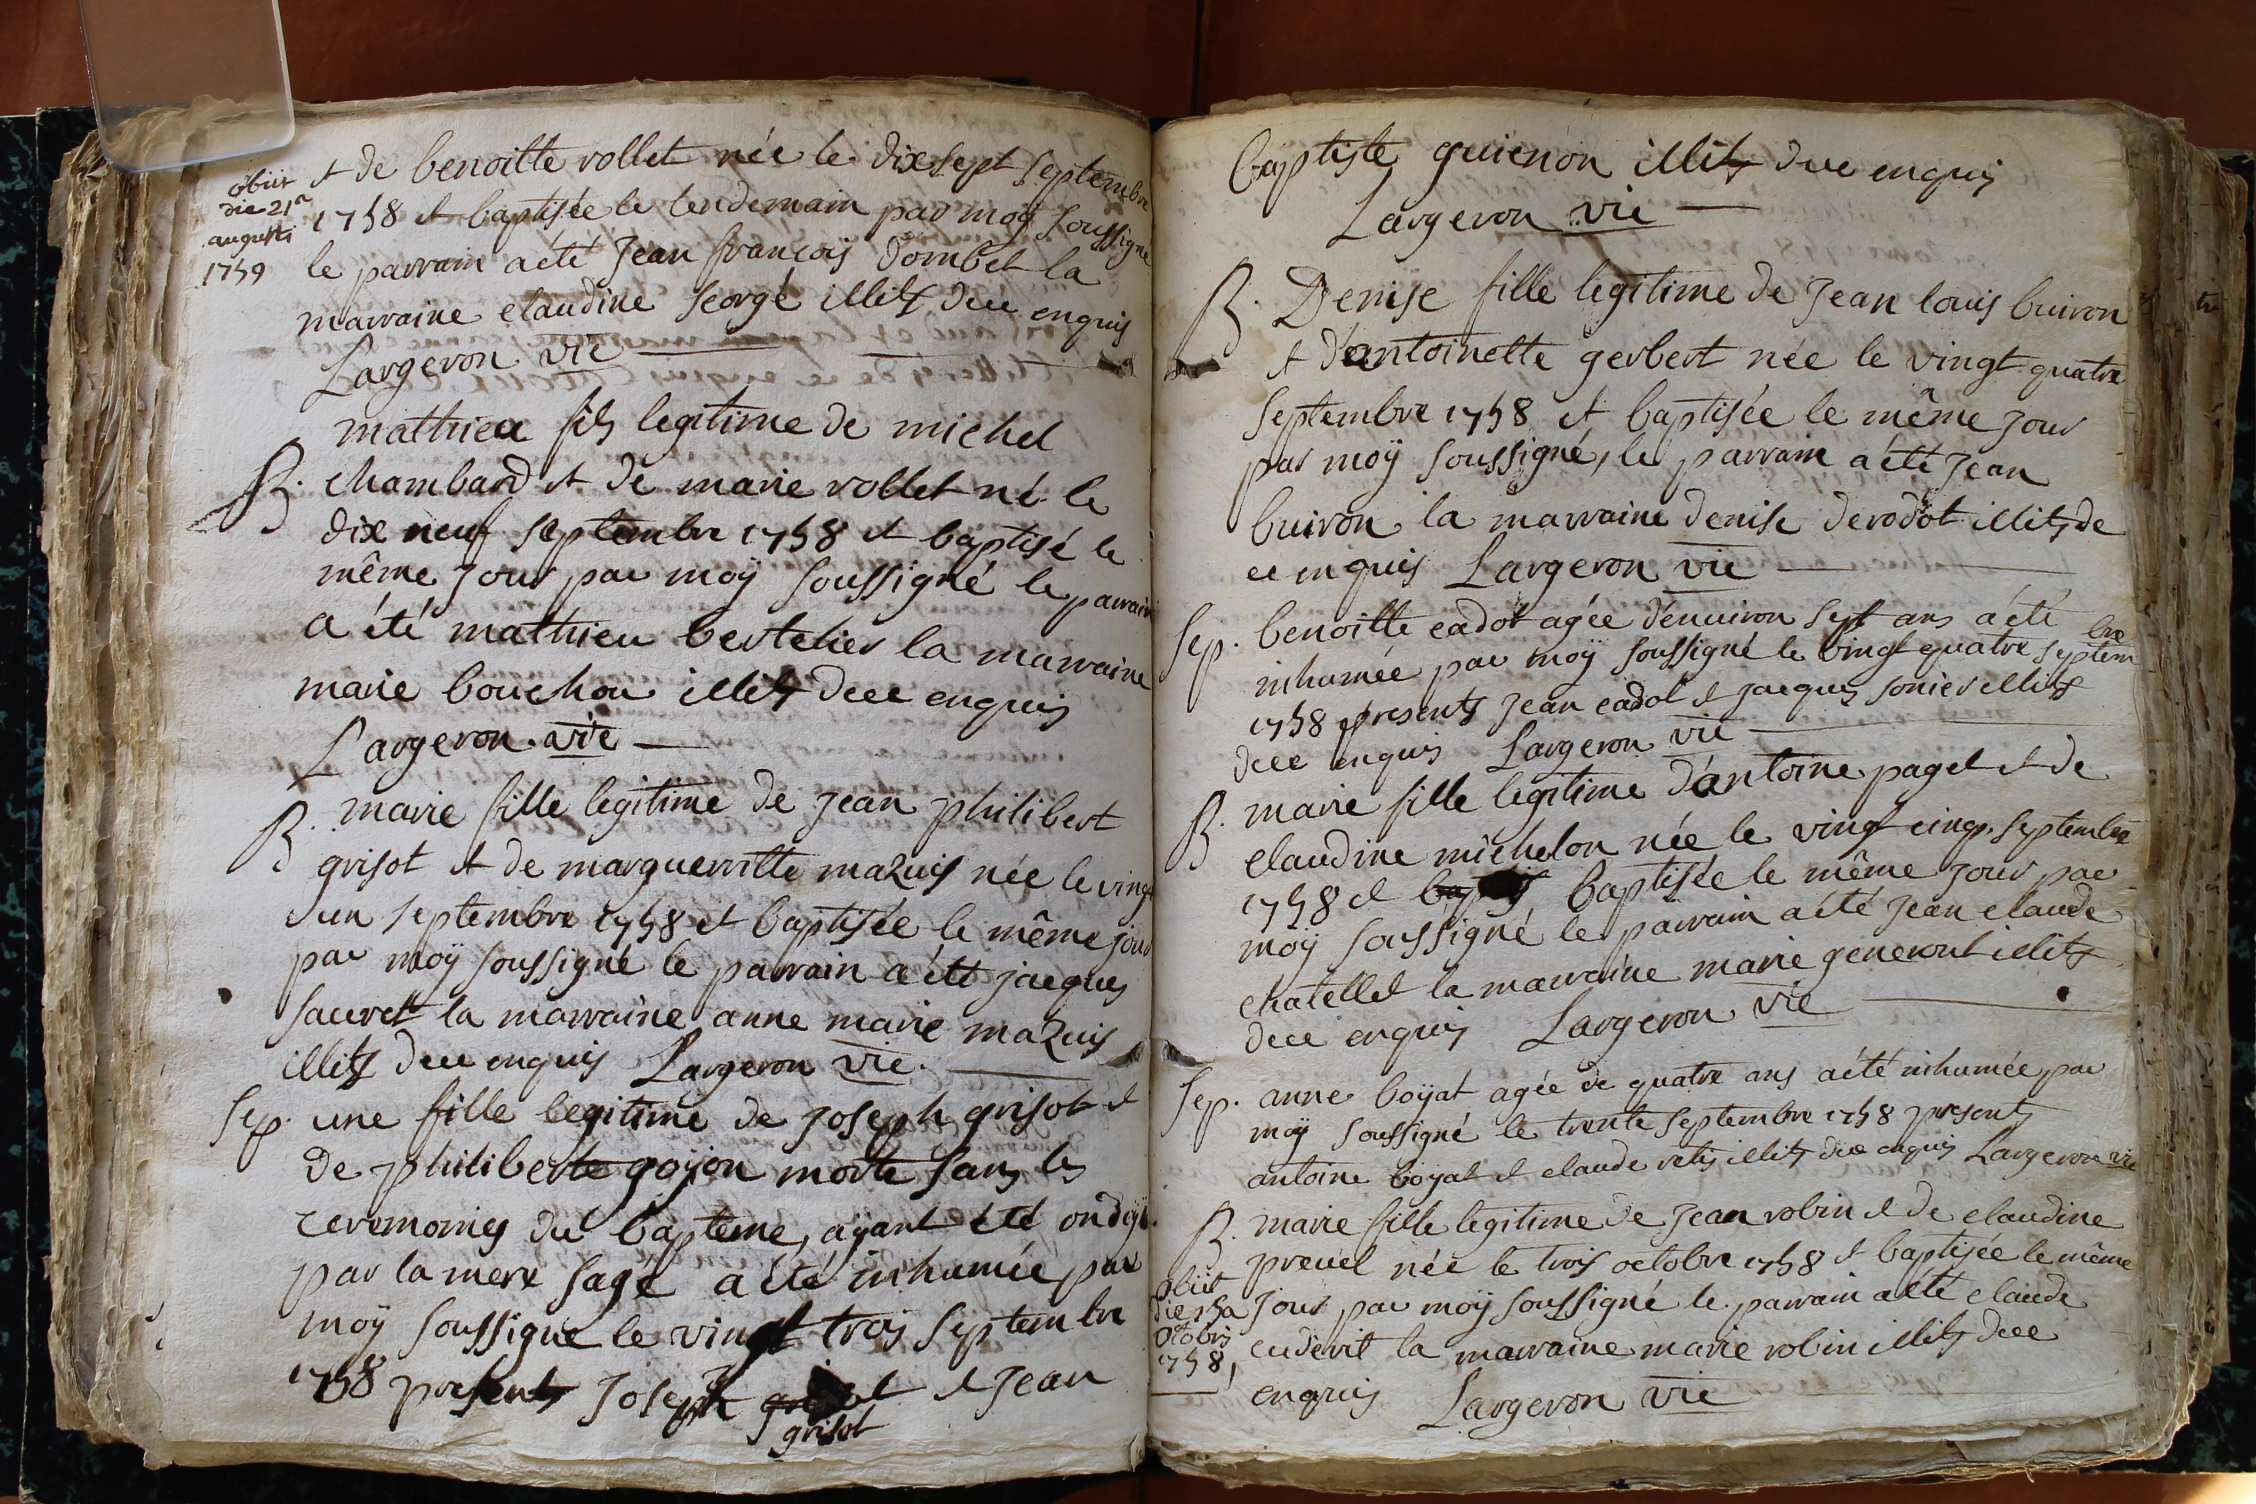 obiit
die 21a
augusti
1759
et de benoitte rollet née le dix sept septembre
1758 et baptisée le lendemain par moÿ soussigné
le parrain a été Jean françois dombet la
marraine claudine george illits dee enquis
Largeron vic
mathieu fils legitime de michel
B. chambard et de marie rollet né le
dix neuf septembre 1758 et baptisé le
même jour par moÿ soussigné le parrain
a été mathieu bertelier la marraine
marie bouchou illits dee enquis
Largeron vic
B. marie fille legitime de Jean philibert
grisot et de marguerritte mazuis née le vingt
un septembre 1758 et baptisée le même jour
par moÿ soussigné le parrain a été jacques
sauvet la marraine anne marie mazuis
illits dee enquis Largeron vic.
Sep. une fille legitime de Joseph grisot et
de philiberte goÿon morte sans les
ceremonies du bapteme, aÿant été ondoÿé
par la mere sage a été inhumée par
moÿ soussigné le vingt trois septembre
1758 presents Joseph et Jean
grisot
baptiste guienon illits dee enquis
Largeron vic
B. Denise fille legitime de Jean louis buiron
et d'antoinette gerbert née le vingt quatre
septembre 1758 et baptisée le même jour
par moÿ soussigné, le parrain a été Jean
buiron la marraine denise derodot illits de
ce enquis Largeron vic
Sep. benoitte cadot agée d'environ sept ans a été
inhumée par moÿ soussigné le vingt quatre septembre
1758 presents Jean cadot et jacques sonier illits
dece enquis Largeron vic
B. marie fille legitime d'antoine paget et de
claudine michelon née le vingt cinq septembre
1758 et baptisée le même jour par
moÿ soussigné le parrain a été jean claude
chatellet la marraine marie generout illits
dece enquis Largeron vic
Sep. anne boÿat agée de quatre ans a été inhumée par
moÿ soussigné le trente septembre 1758 presents
antoine boÿat et claude retis illits dee enquis Largeron vic
B. marie fille legitime de Jean robin et de claudine
preuel née le trois octobre 1758 et baptisée le même
jour par moÿ soussigné le parrain a été claude
cudevil la marraine marie robin illits dee
enquis Largeron vic
obiit
die 15a
octobris
1758,